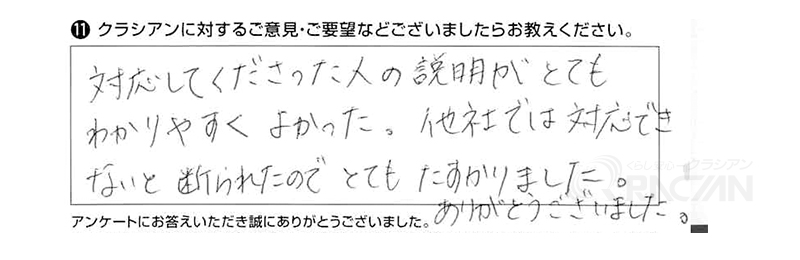 ⓫ クラシアンに対するご意見・ご要望などございましたらお教えください。
対応してくださった人の説明がとても
わかりやすく よかった。他社では対応でき
ないと断られたので とても たすかりました。
ありがとうございました。
アンケートにお答えいただき誠にありがとうございました。
くらしあんしんクラシアン
QRACIAN